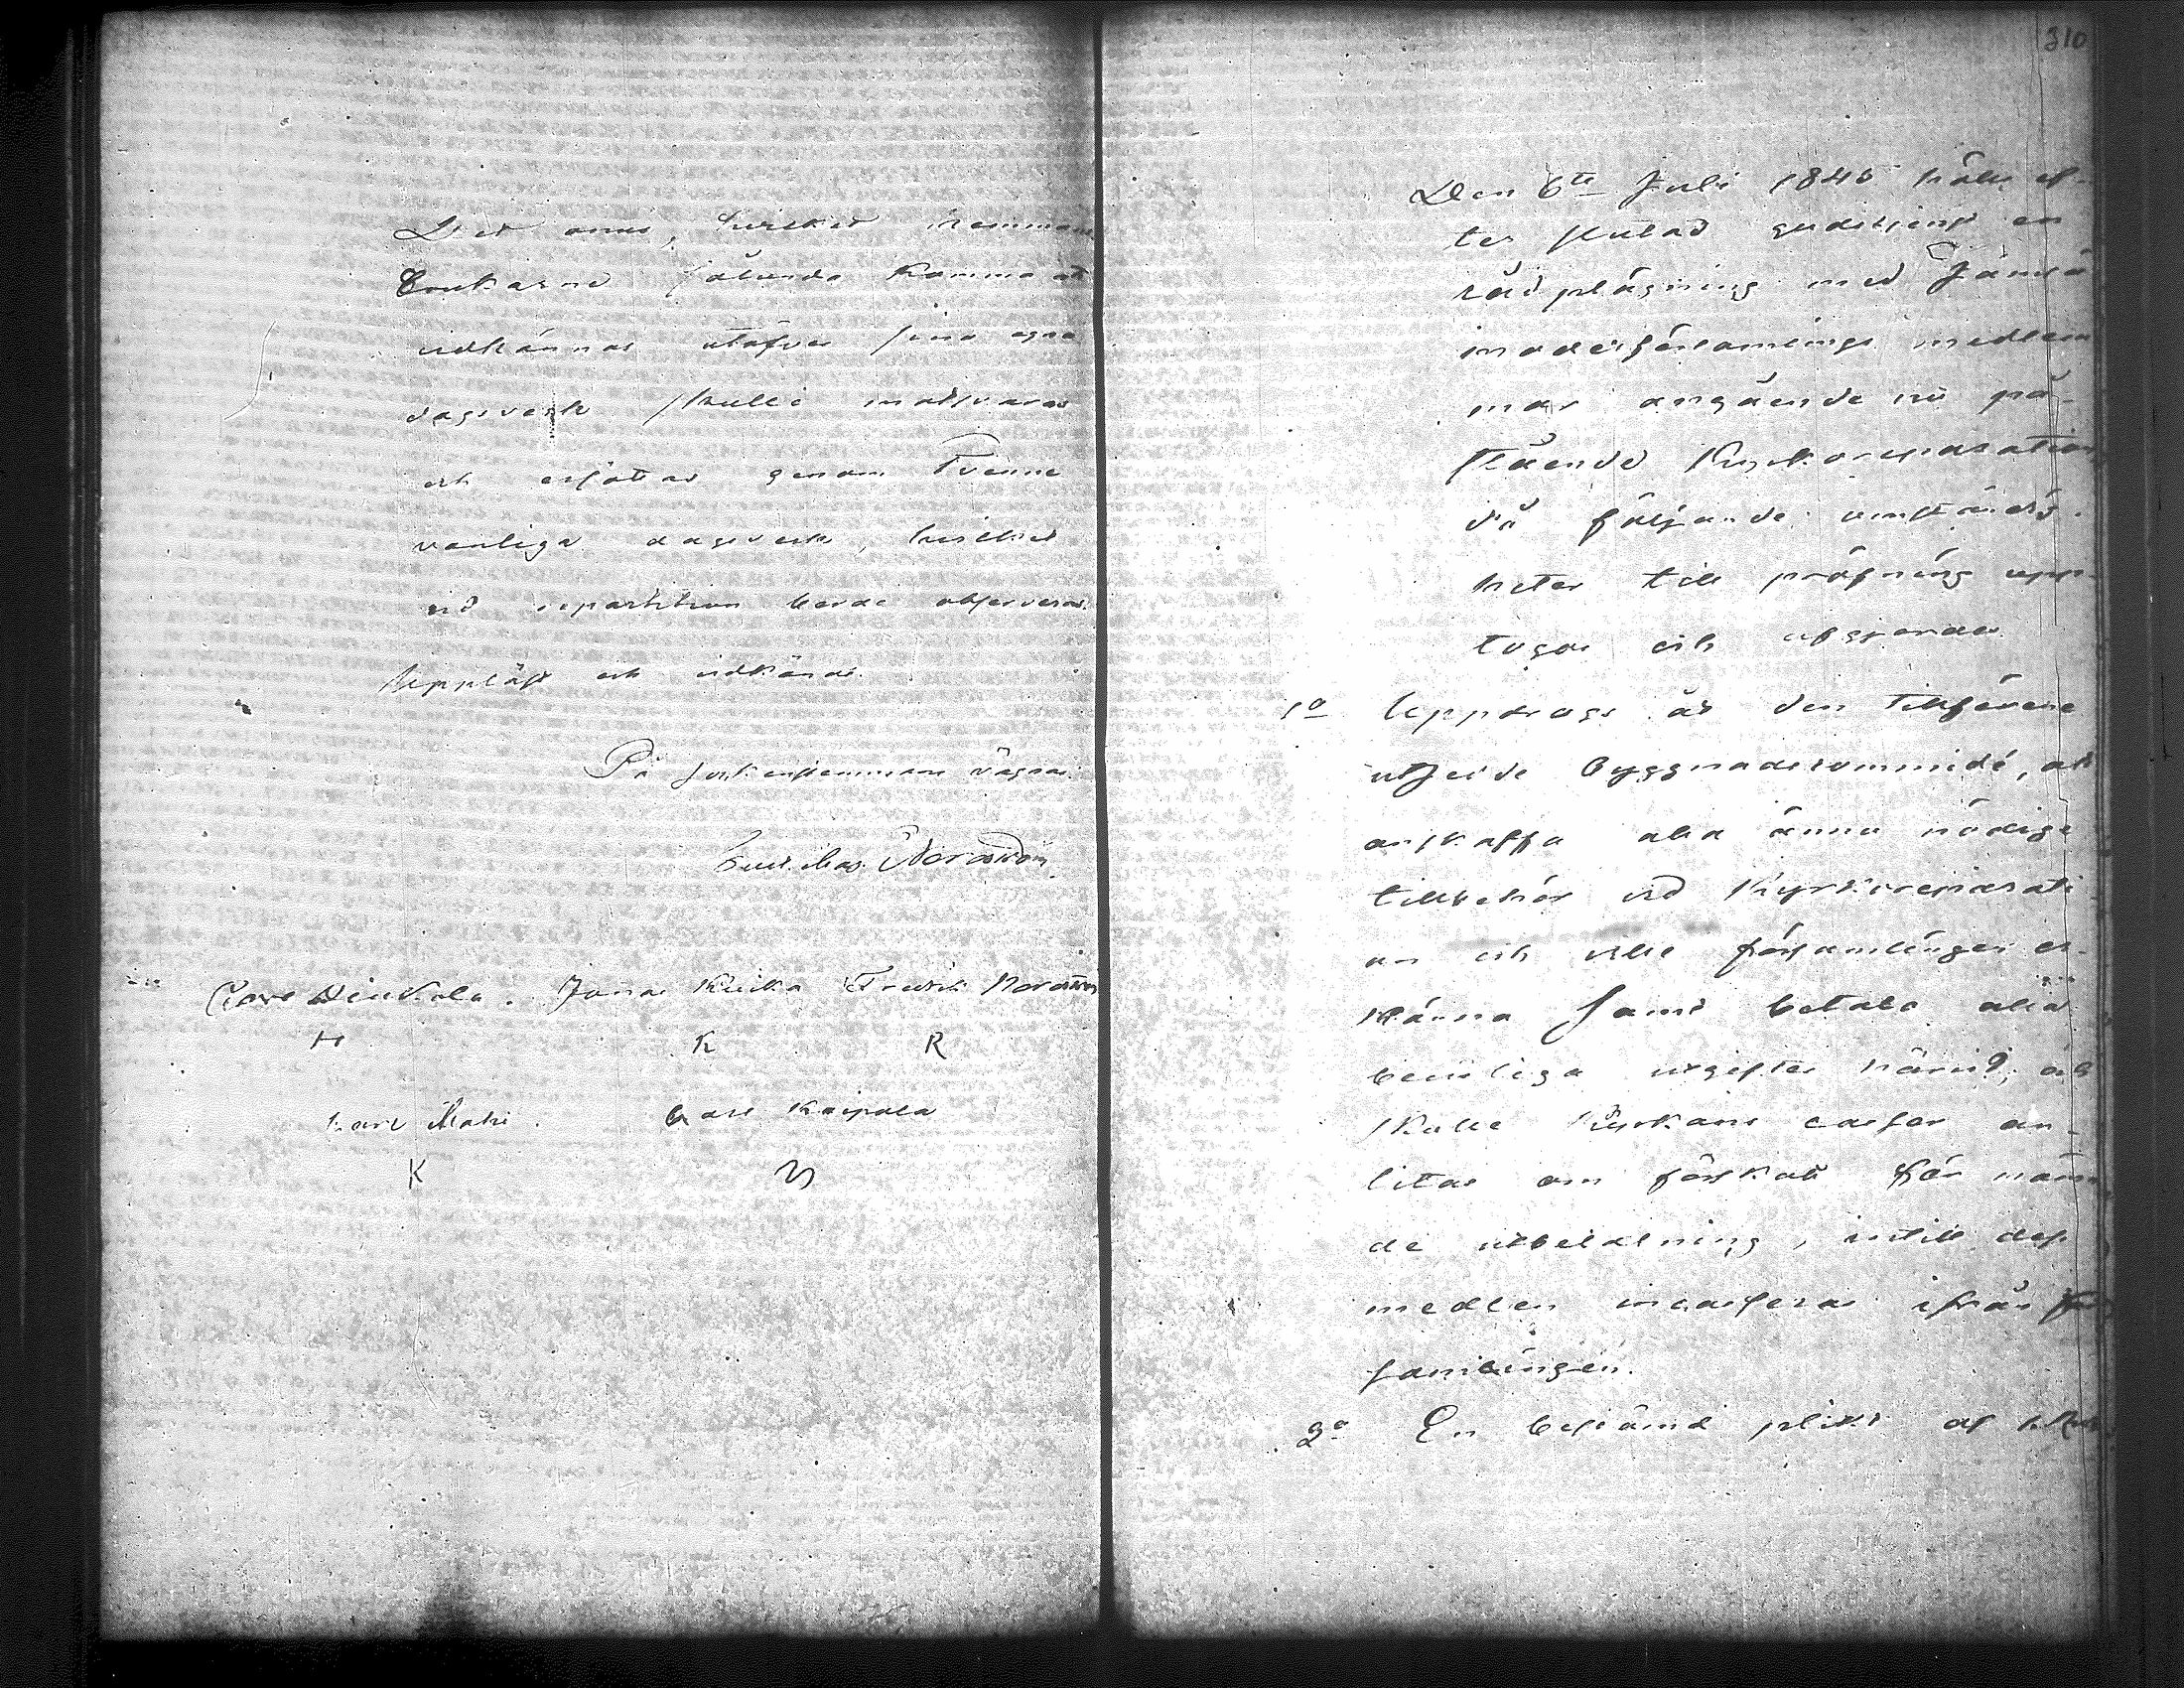 Det anus, hvilket hemmans
brukarne således komma at
vidkännas utöfver sina egna
dagsverk skulle motsvaras
och ersättas genom Tvenne
vanliga dagsverk, hvilket
vid repartition borde observeras.
Uppläst och vidkändt.
På sockenstemmans vägnar
Gust. Nordström
Carl Heikola. Jonas Kuika Fredrik
H K R
Carl Maki. Carl Kaipola
K
310
Den 6te Juli 1845 hölls ef-
ter slutad gudstjenst en
rådplägning med Jämsä
moderförsamlings medlem
mar angående nu på-
stående Kyrkoreparation
då följande omständig-
heter till pröfning upp-
togos och afgjordes.
1o Uppdrogs åt den tillförene
utsedde byggnadscommidé, att
anskaffa alla ännu nödige
tillbehör vid Kyrkoreparati-
on och ville församlingen er-
känna samt betala alla
benliga utgifter härvid, och
skulle Kyrkans cassor an-
litas om förskott för
de utbetalning, intill dess
medlen incasseras ifrån för
samlingen.
2o En bestämd plikt af